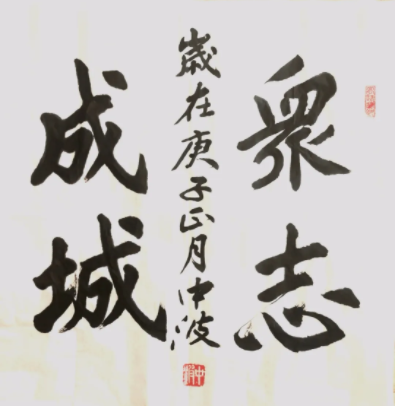 眾志
歲在庚子正月中波
成城